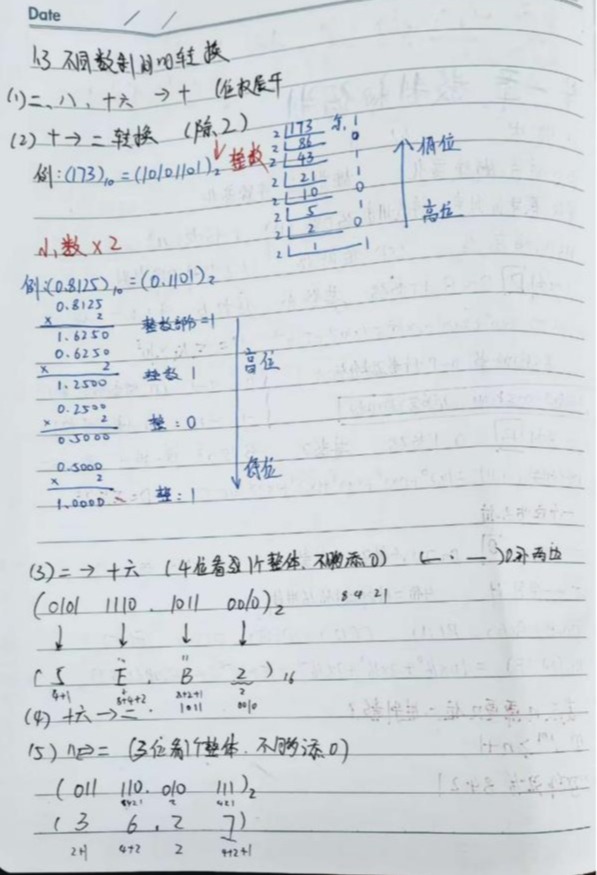 Date
1.3 不同数制间的转换
(1) 二、八、十六 → 十 (位权展开
(2) 十→二 转换 (除2)
例:(173)₁₀ = (10101101)₂ 整数
2 173 余. 1
2 86 0
2 43 1
2 21 1
2 10 0
2 5 1
2 2 0
2 1 1
低位
高位
小数×2
例:(0.8125)₁₀ = (0.1101)₂
0.8125
× 2
1.6250 整数部分=1
0.6250
× 2
1.2500 整数 1
0.2500
× 2 整:0
0.5000
0.5000
× 2
1.0000 整:1
高位
低位
(3) 二 → 十六 (4位看成1个整体, 不够添0) (← . →) 0补两边
(0101 1110 . 1011 0010)₂ 8 4 2 1
↓ ↓ ↓ ↓
( 5 E . B 2 )₁₆
4+1 8+4+2 8+2+1 2
1011 0010
(4) 十六→二.
(5) 八⇌二 (3位看1个整体, 不够添0)
(011 110. 010 111)₂
421 2 421
( 3 6 . 2 7)
2+1 4+2 2 4+2+1